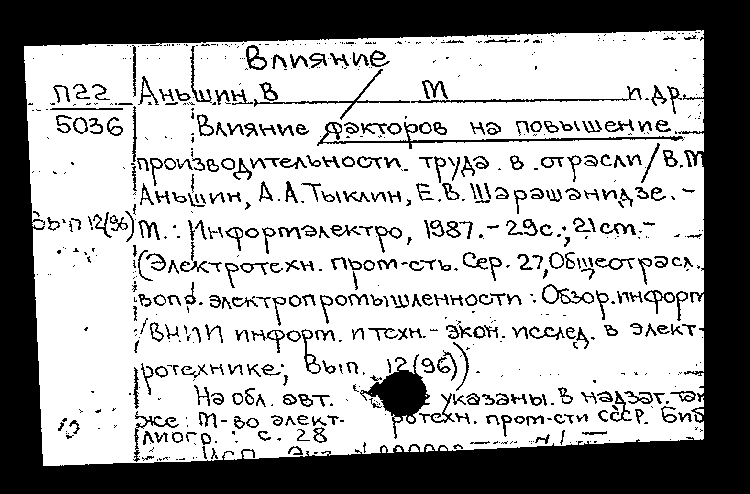 Влияние
П22 Аньшин, В М и др.
5036 Влияние факторов на повышение
производительности труда в отрасли / В.М
Аньшин, А.А.Тыклин, Е.В. Шарашанидзе. -
Вып 12(96) М.: Информэлектро, 1987. - 29с.; 21см. -
(Электротехн. пром-сть. Сер. 27, Общеотрасл.
вопр. электропромышленности : Обзор. информ
/ ВНИИ информ. и техн.-экон. исслед. в элект-
ротехнике; Вып. 12(96)).
На обл. авт. указаны. В надзаг. так
же: М-во элект- ротехн. пром-сти СССР. Биб
лиогр.: с. 28